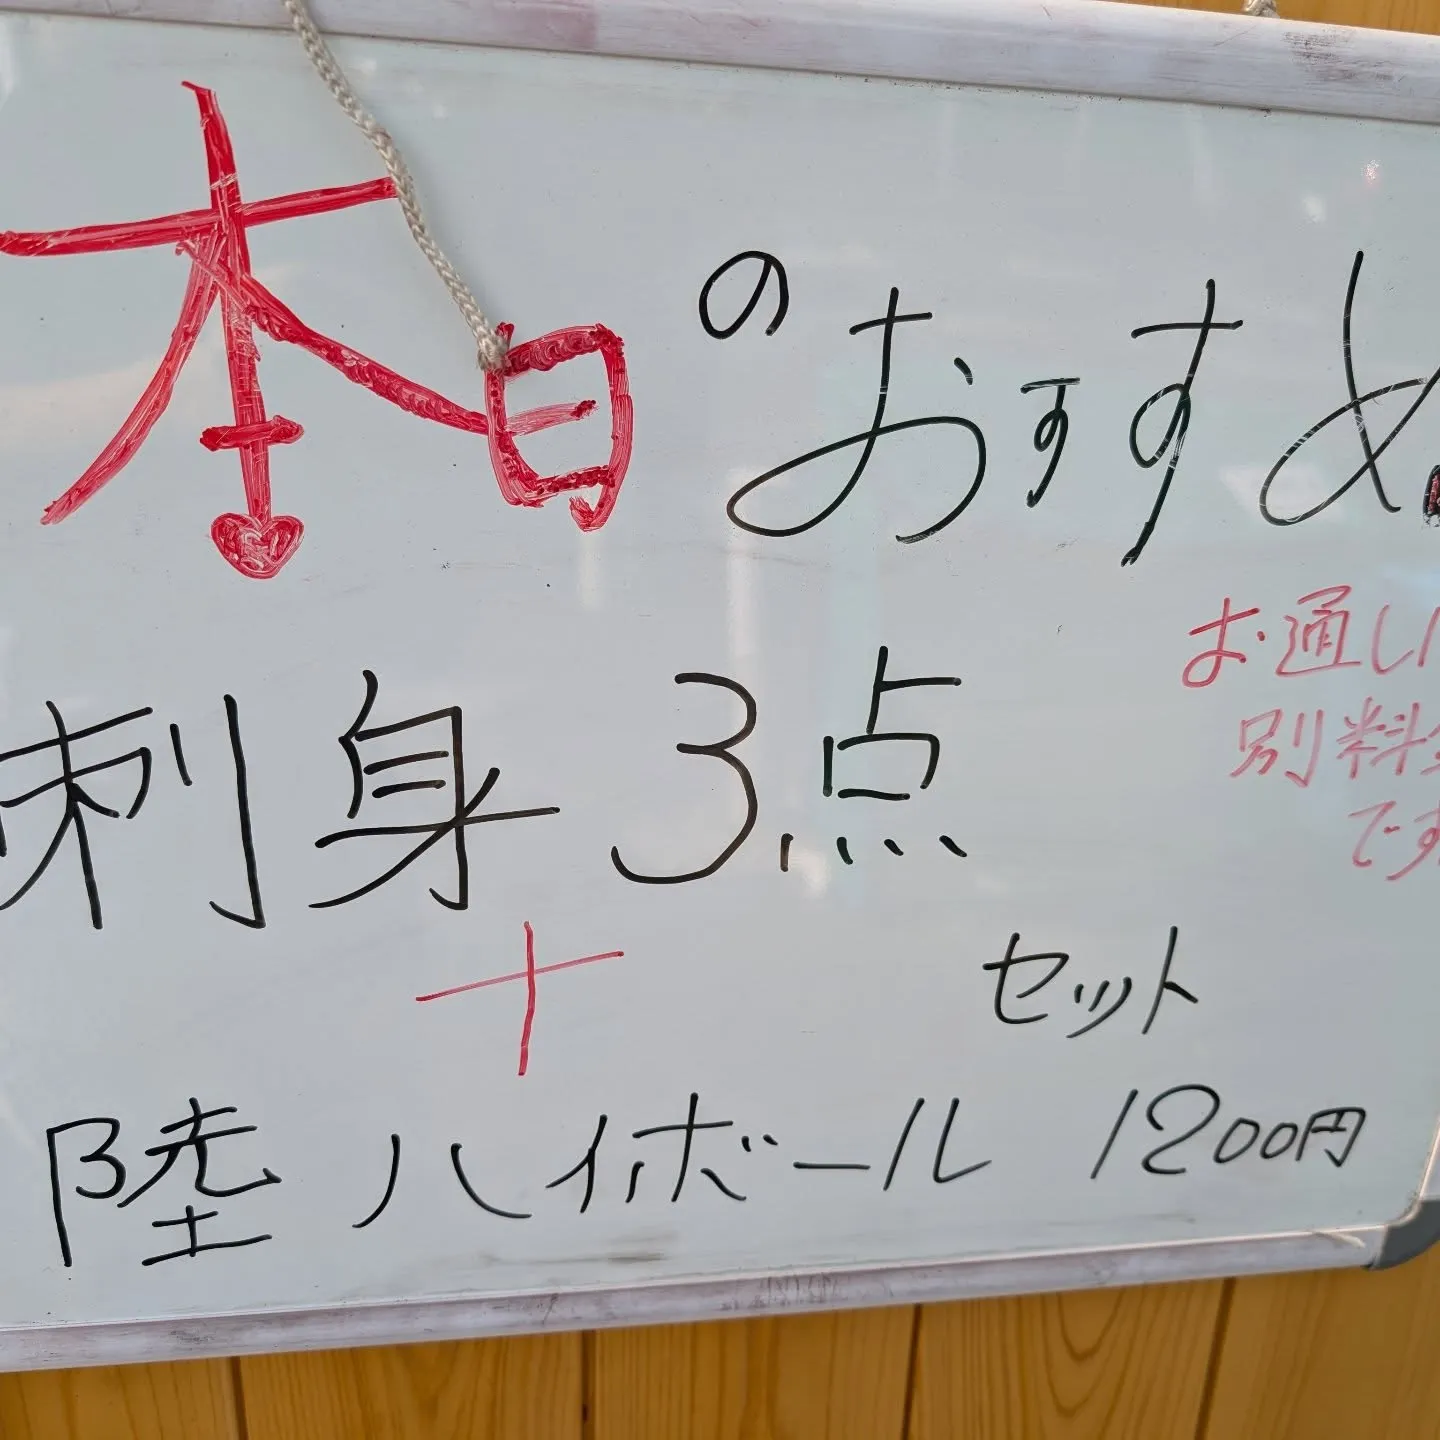 本日のおすすめ
お通し
別料金
です
刺身3点
+
セット
陸ハイボール 1200円